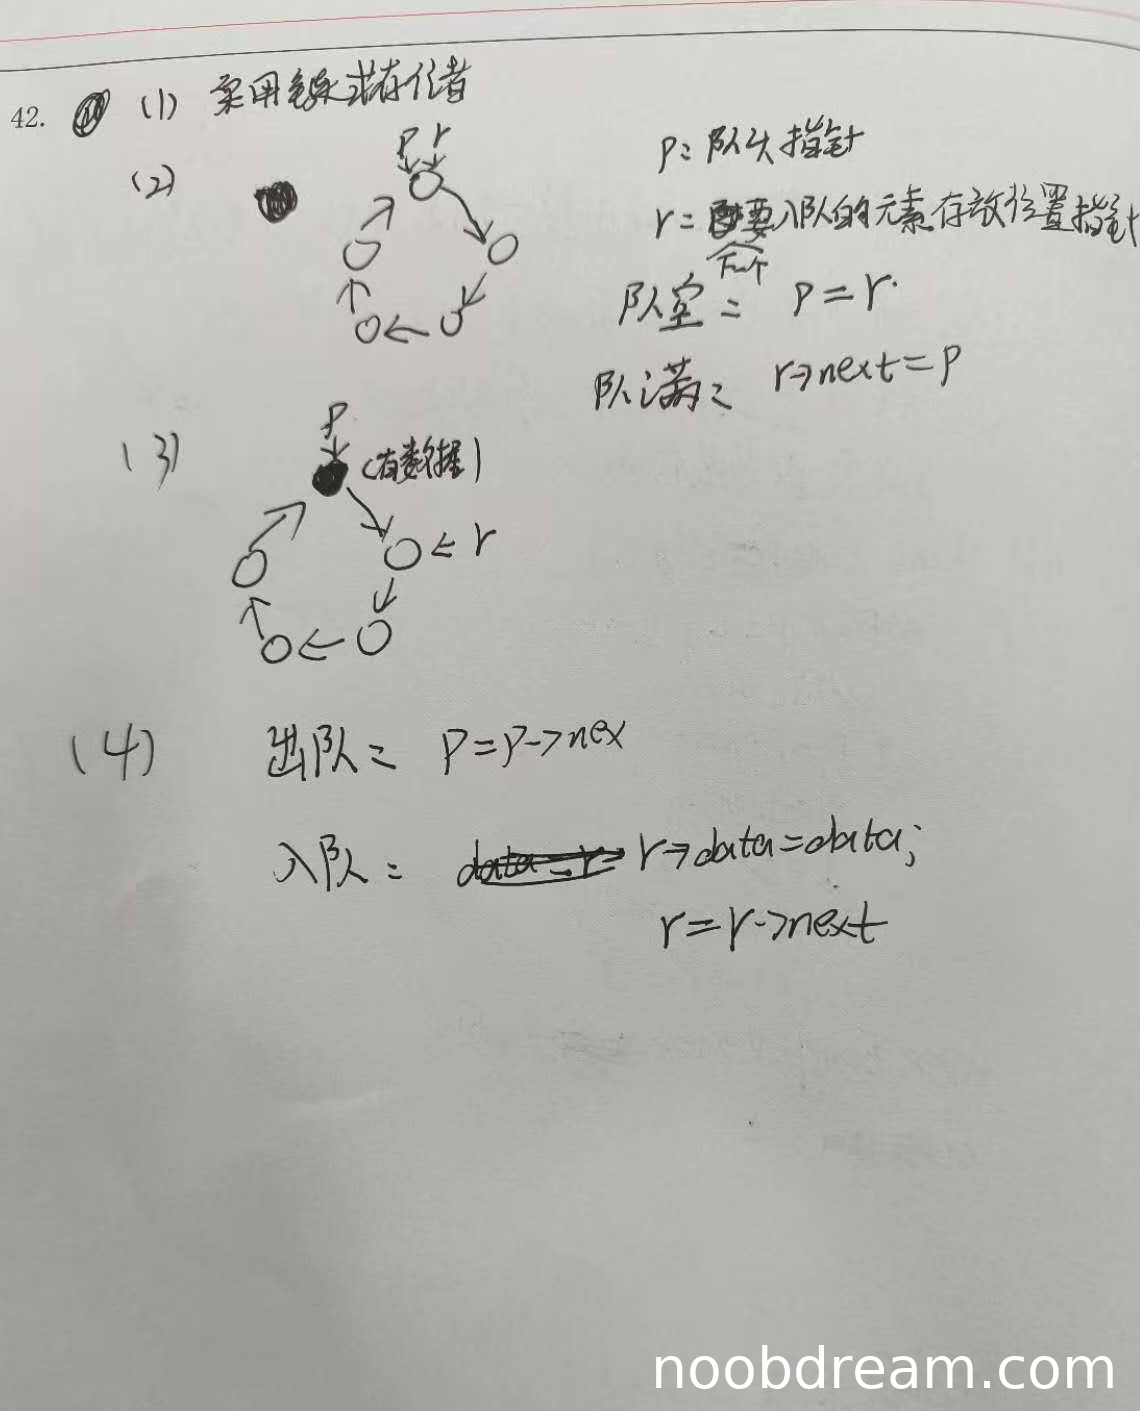 42. (1) 采用链式存储
(2) p r
p: 队头指针
r = 要入队的元素存放位置指针
下一个
队空: p = r.
队满: r→next = p
(3) p
(有数据)
r
(4) 出队: p = p->nex
入队: r→data = data;
r = r->next
noobdream.com